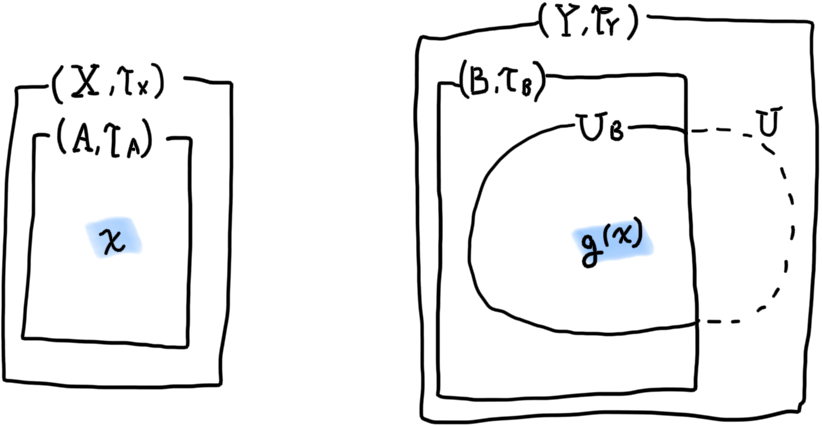 (X,τx)
(A,τA)
x
(Y,τY)
(B,τB)
UB
U
g(x)